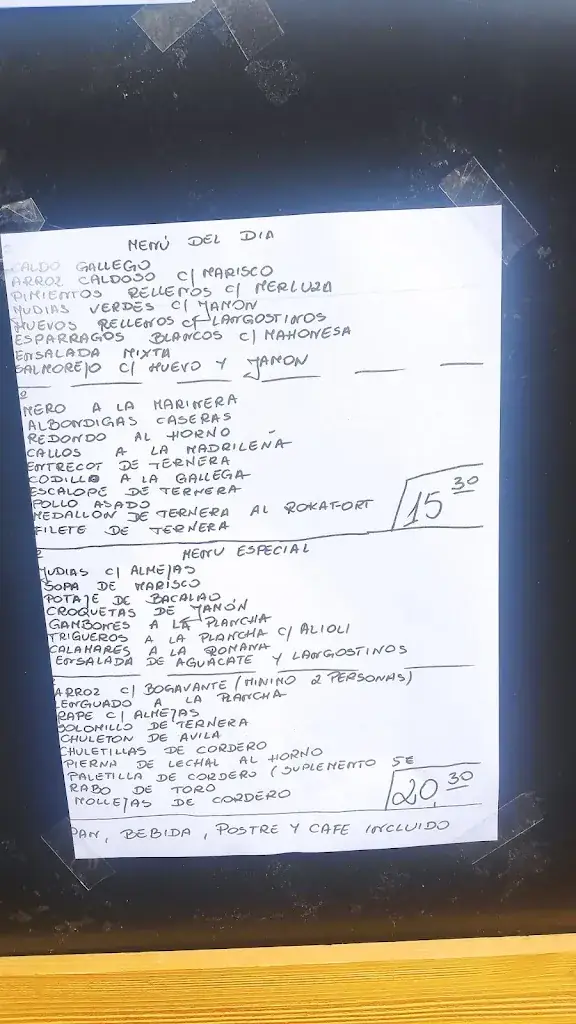 MENÚ DEL DIA
CALDO GALLEGO
ARROZ CALDOSO C/ MARISCO
PIMIENTOS RELLENOS C/ MERLUZA
JUDIAS VERDES C/ JAMON
HUEVOS RELLENOS C/ LANGOSTINOS
ESPARRAGOS BLANCOS C/ MAHONESA
ENSALADA MIXTA
SALMOREJO C/ HUEVO Y JAMON
MERO A LA MARINERA
ALBONDIGAS CASERAS
REDONDO AL HORNO
CALLOS A LA MADRILEÑA
ENTRECOT DE TERNERA
CODILLO A LA GALLEGA
ESCALOPE DE TERNERA
POLLO ASADO
MEDALLON DE TERNERA AL ROKAFORT
FILETE DE TERNERA
15 30
MENU ESPECIAL
JUDIAS C/ ALMEJAS
SOPA DE MARISCO
POTAJE DE BACALAO
CROQUETAS DE JAMÓN
GAMBONES A LA PLANCHA
TRIGUEROS A LA PLANCHA C/ ALIOLI
CALAMARES A LA ROMANA
ENSALADA DE AGUACATE Y LANGOSTINOS
ARROZ C/ BOGAVANTE (MINIMO 2 PERSONAS)
LENGUADO A LA PLANCHA
RAPE C/ ALMEJAS
SOLOMILLO DE TERNERA
CHULETON DE AVILA
CHULETILLAS DE CORDERO
PIERNA DE LECHAL AL HORNO
PALETILLA DE CORDERO (SUPLEMENTO 5€
RABO DE TORO
MOLLEJAS DE CORDERO
20,30
PAN, BEBIDA, POSTRE Y CAFE INCLUIDO